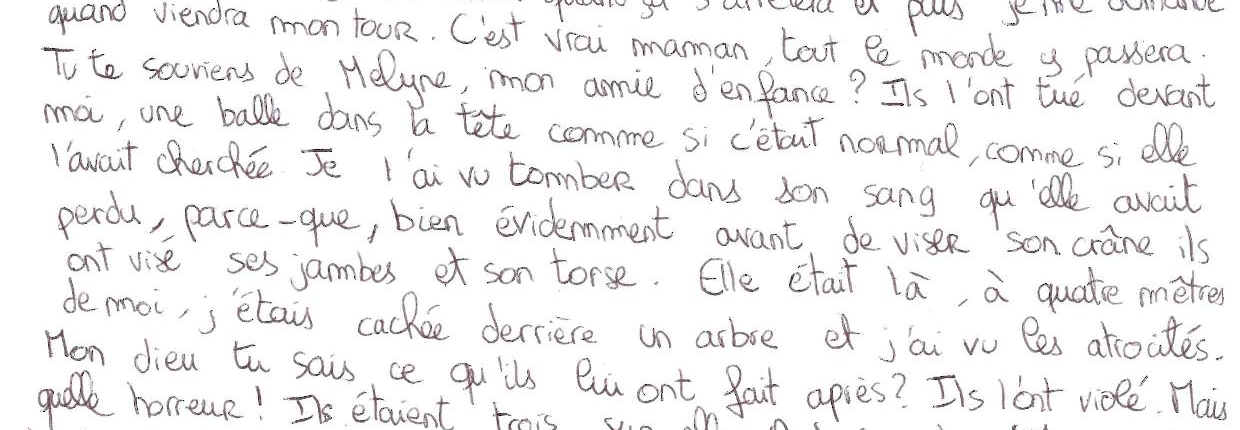 quand viendra mon tour. C'est vrai maman, tout le monde y passera.
Tu te souviens de Melyne, mon amie d'enfance ? Ils l'ont tué devant
moi, une balle dans la tête comme si c'était normal, comme si elle
l'avait cherchée. Je l'ai vu tomber dans son sang qu'elle avait
perdu, parce-que, bien évidemment avant de viser son crâne ils
ont visé ses jambes et son torse. Elle était là, à quatre mètres
de moi, j'étais cachée derrière un arbre et j'ai vu les atrocités.
Mon dieu tu sais ce qu'ils lui ont fait après ? Ils l'ont violé. Mais
quelle horreur ! Ils étaient trois sur